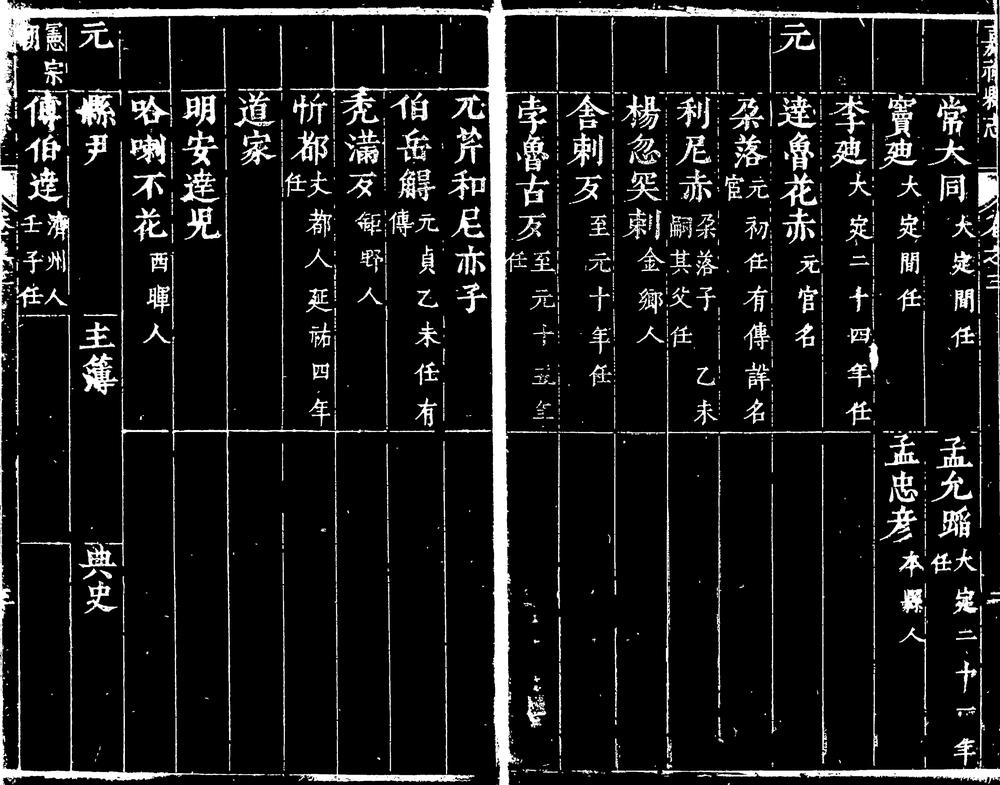 嘉祥縣志
卷之三
常大同 大定間任
孟允蹈 大定二十一年任
竇廸 大定間任
孟忠彦 本縣人
李廸 大定二十四年任
元
達魯花赤 元官名
朶落 元初任有傳詳名宦
利尼赤 朶落子乙未嗣其父任
楊忽哭剌 金鄉人
舎剌歹 至元十年任
孛魯古歹 至元十五年任
兀芹和尼赤子
伯岳䚟 元貞乙未任有傳
禿滿歹 鉅野人
忻都 大都人延祐四年任
道家
明安達児
哈喇不花 西暉人
元
縣尹
主簿
典史
憲宗
傅伯達 濟州人壬子任